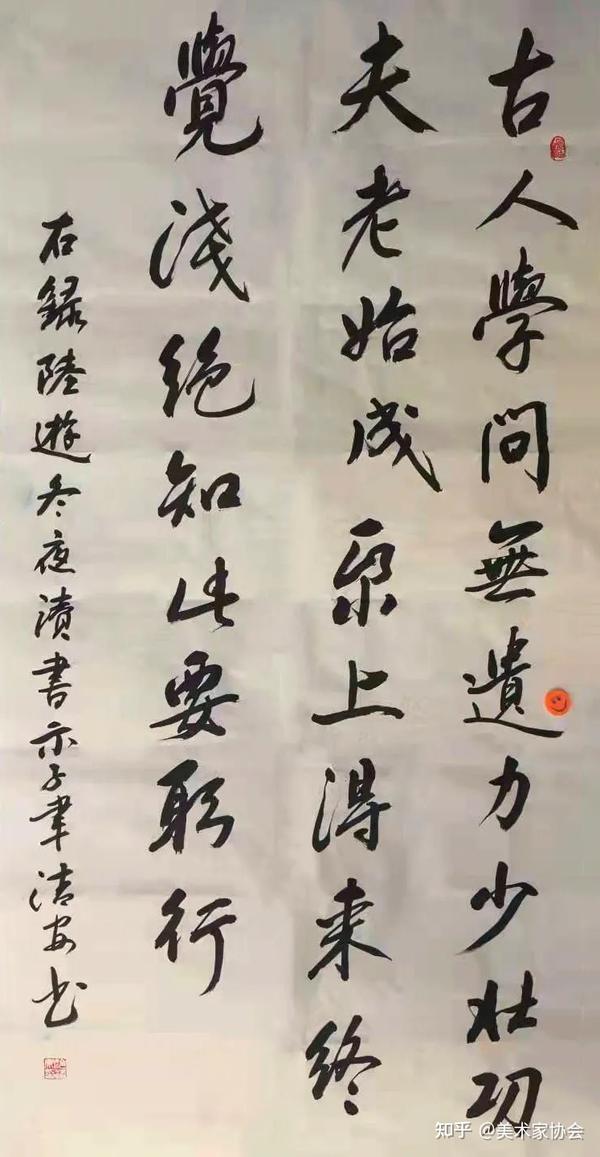 古人學問無遺力少壯功
夫老始成帋上得来終
覺淺絶知此要躬行
右録陸遊冬夜讀書示子聿洁安书
知乎 @美术家协会